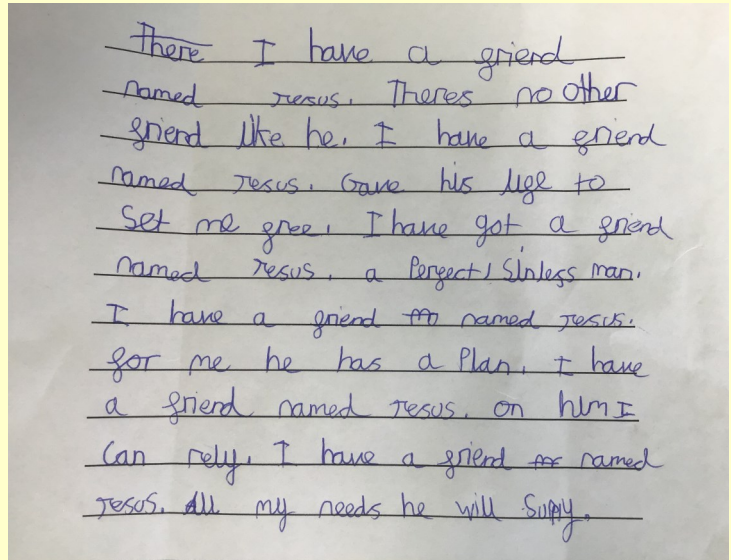 There I have a friend
named Jesus. Theres no other
friend like he. I have a friend
named Jesus. Gave his life to
set me free. I have got a friend
named Jesus. a Perfect, Sinless man.
I have a friend named Jesus.
for me he has a Plan. I have
a friend named Jesus. on him I
Can rely. I have a friend named
Jesus. All my needs he will Supply.